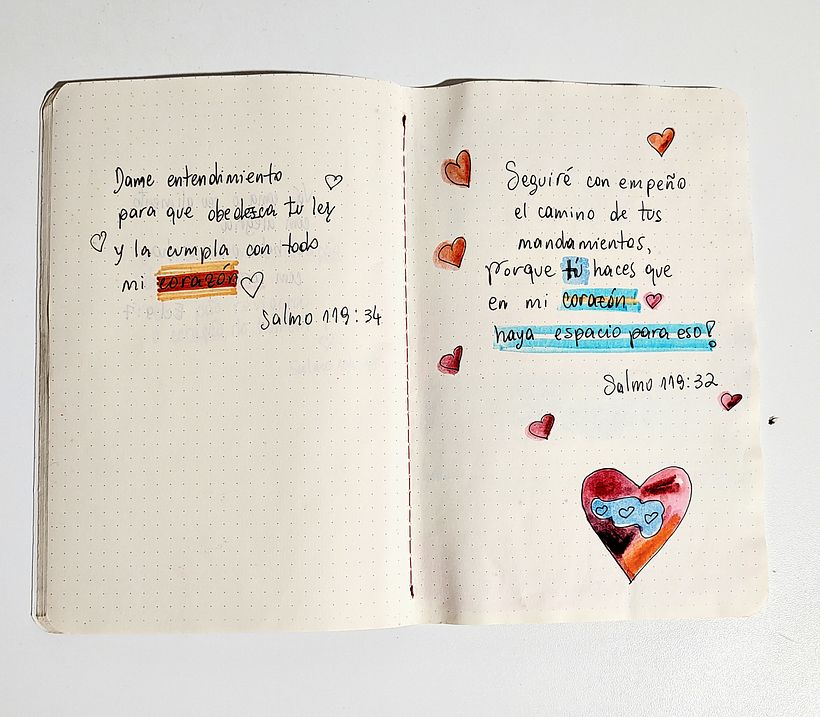 Dame entendimiento
para que obedezca tu ley
y la cumpla con todo
mi corazón
Salmo 119:34
Seguiré con empeño
el camino de tus
mandamientos,
porque tú haces que
en mi corazón
haya espacio para eso!
Salmo 119:32